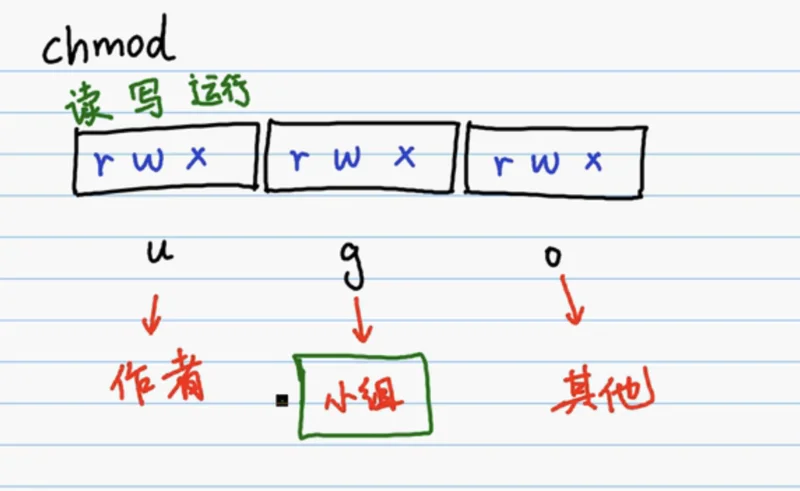 chmod
读 写 运行
r w x r w x r w x
u g o
作者 小组 其他